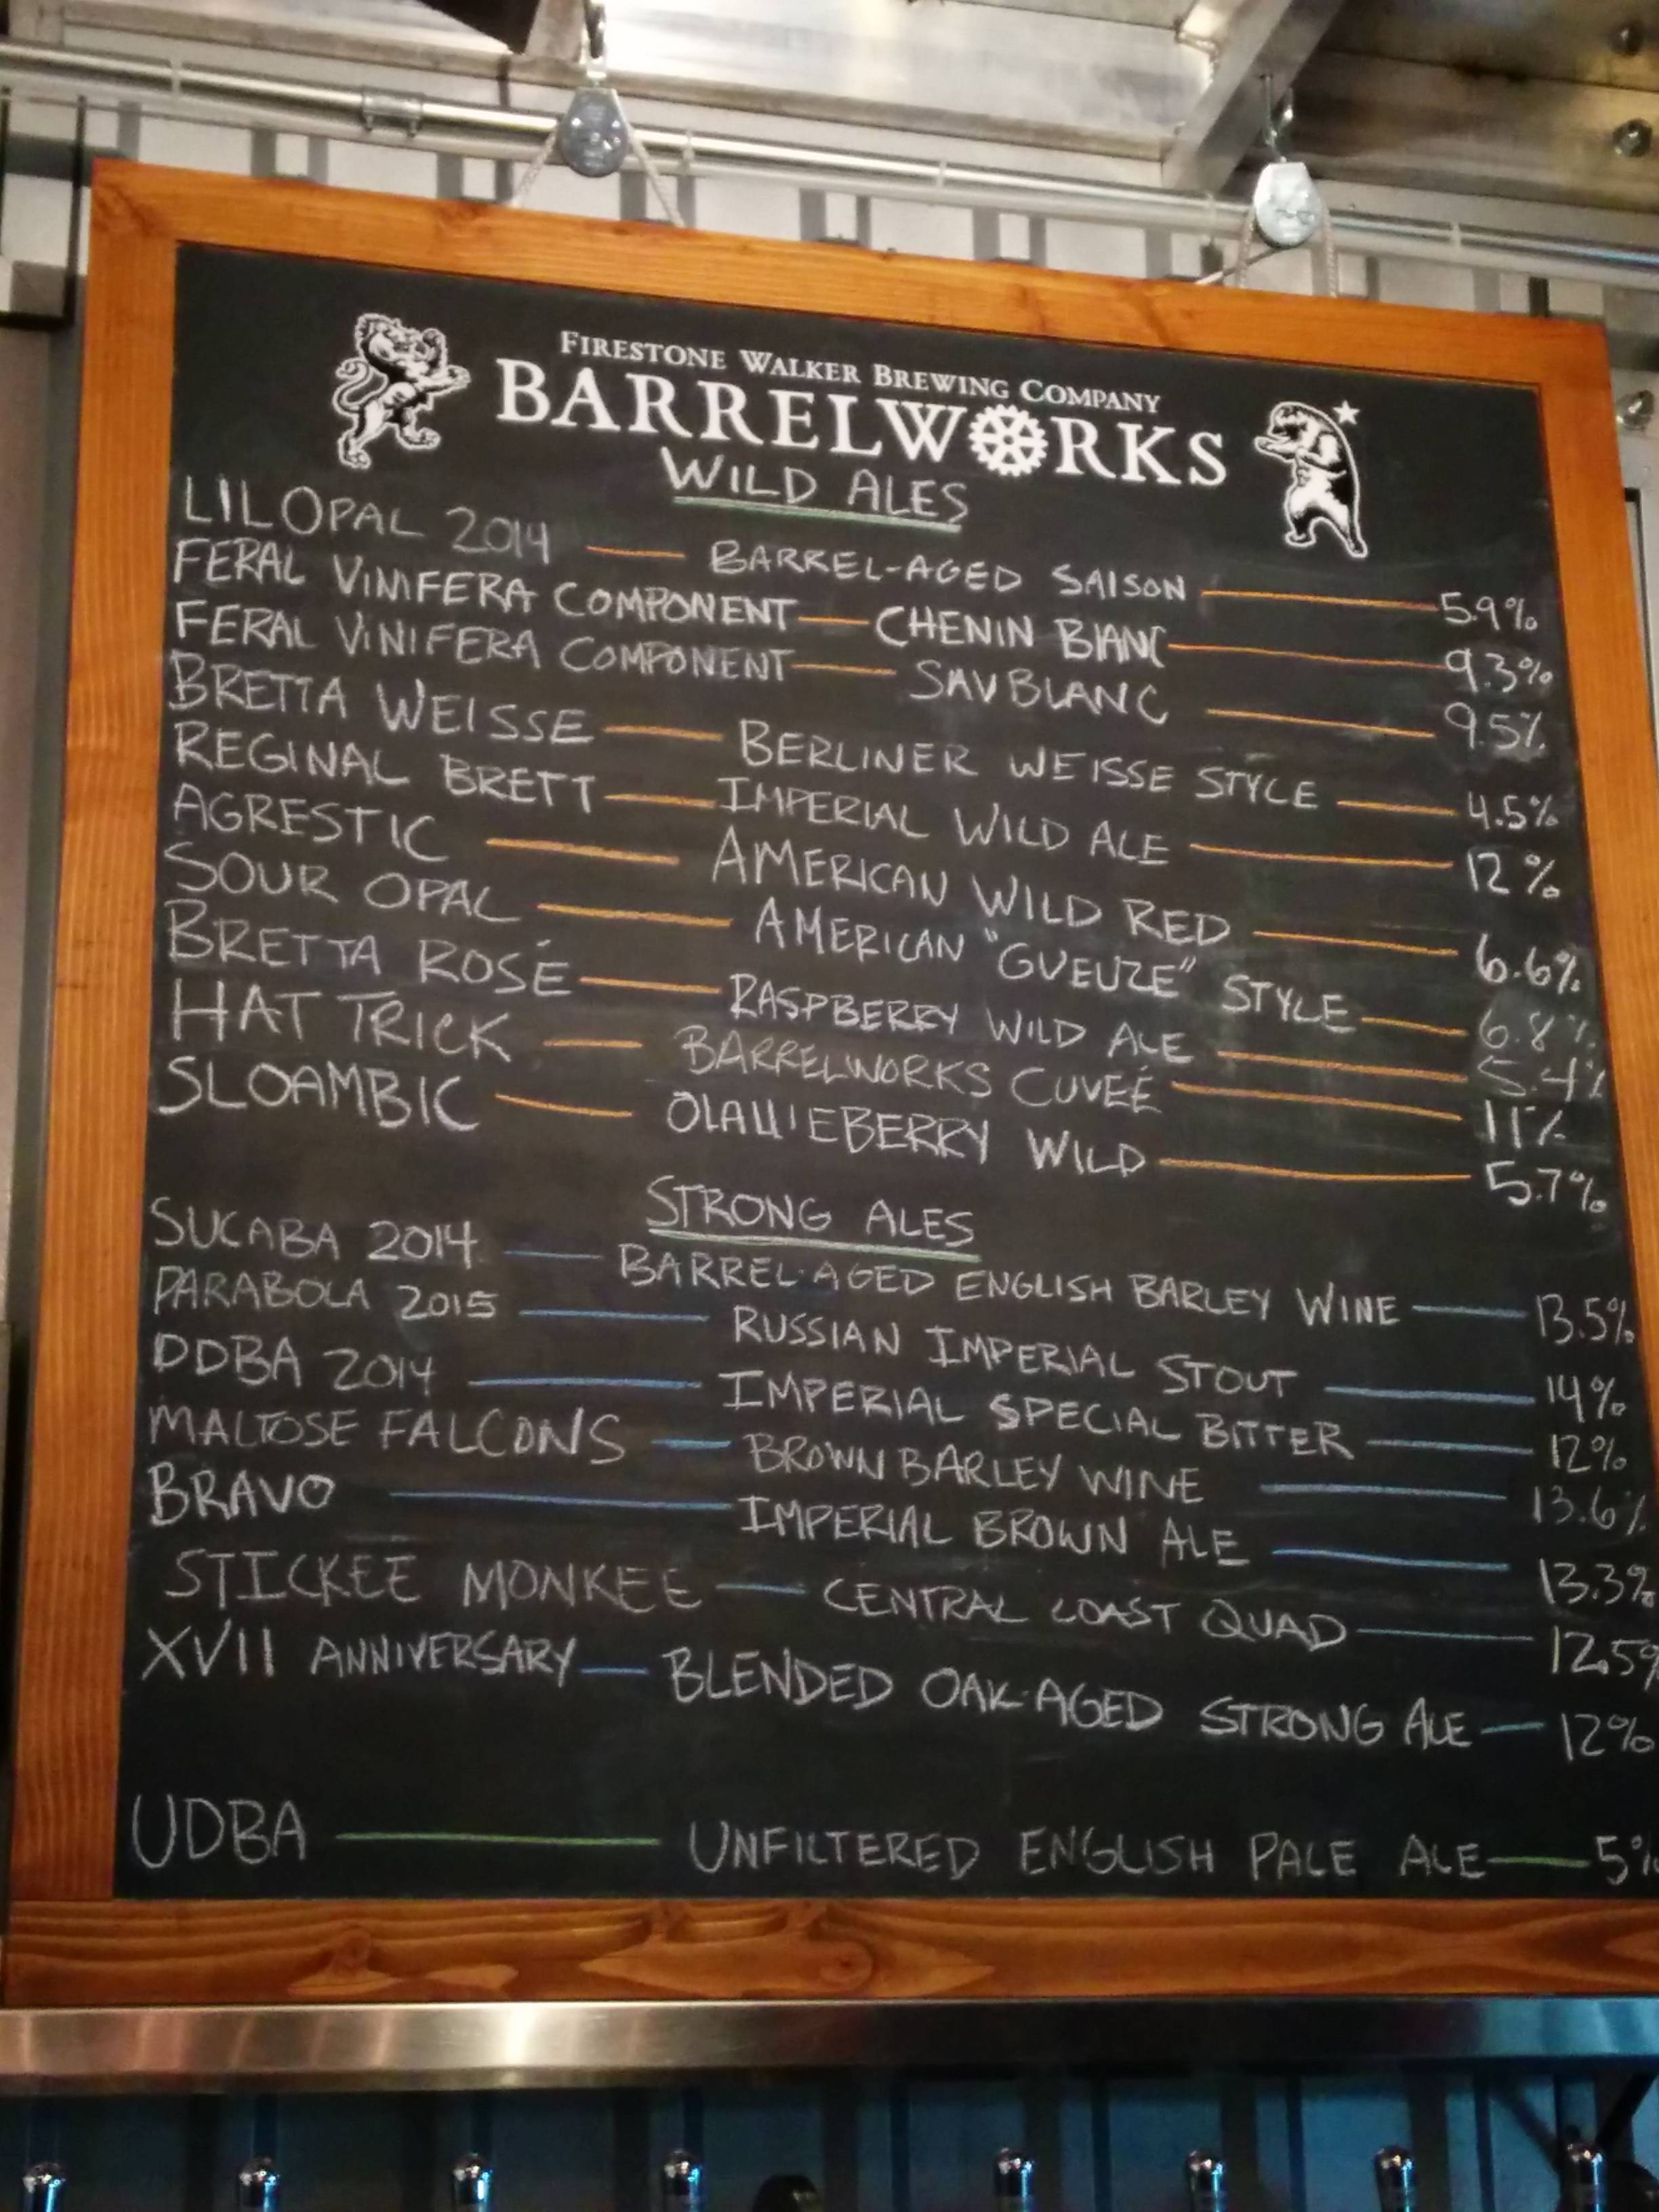 FIRESTONE WALKER BREWING COMPANY
BARRELWORKS
WILD ALES
LIL OPAL 2014 — BARREL-AGED SAISON — 5.9%
FERAL VINIFERA COMPONENT — CHENIN BLANC — 9.3%
FERAL VINIFERA COMPONENT — SAV BLANC — 9.5%
BRETTA WEISSE — BERLINER WEISSE STYLE — 4.5%
REGINAL BRETT — IMPERIAL WILD ALE — 12%
AGRESTIC — AMERICAN WILD RED — 6.6%
SOUR OPAL — AMERICAN "GUEUZE" STYLE — 6.8%
BRETTA ROSÉ — RASPBERRY WILD ALE — 5.4%
HAT TRICK — BARRELWORKS CUVEÉ — 11%
SLOAMBIC — OLALLIEBERRY WILD — 5.7%
STRONG ALES
SUCABA 2014 — BARREL-AGED ENGLISH BARLEY WINE — 13.5%
PARABOLA 2015 — RUSSIAN IMPERIAL STOUT — 14%
DDBA 2014 — IMPERIAL SPECIAL BITTER — 12%
MALTOSE FALCONS — BROWN BARLEY WINE — 13.6%
BRAVO — IMPERIAL BROWN ALE — 13.3%
STICKEE MONKEE — CENTRAL COAST QUAD — 12.5%
XVII ANNIVERSARY — BLENDED OAK-AGED STRONG ALE — 12%
UDBA — UNFILTERED ENGLISH PALE ALE — 5%